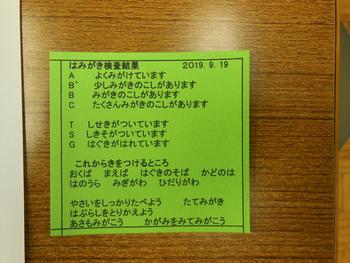 はみがき検査結果　2019. 9. 19
A　よくみがけています
B゜　少しみがきのこしがあります
B　みがきのこしがあります
C　たくさんみがきのこしがあります
T　しせきがついています
S　しきそがついています
G　はぐきがはれています
これからきをつけるところ
おくば　まえば　はぐきのそば　かどのは
はのうら　みぎがわ　ひだりがわ
やさいをしっかりたべよう　たてみがき
はぶらしをとりかえよう
あさもみがこう　かがみをみてみがこう